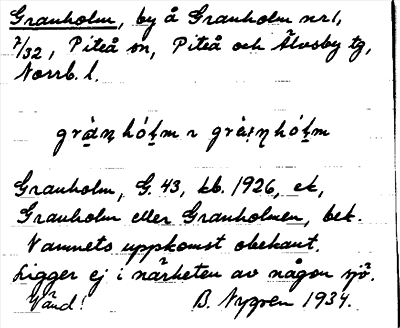 Granholm, by å Granholm nr 1,
7/32, Piteå sn, Piteå och Älvsby tg,
Norrb. l.
grànhólm ~ gràinhólm
Granholm, G. 43, kb. 1926, ek,
Granholm eller Granholmen, bek.
Namnets uppkomst obekant.
Ligger ej i närheten av någon sjö.
Vänd! B. Nygren 1934.